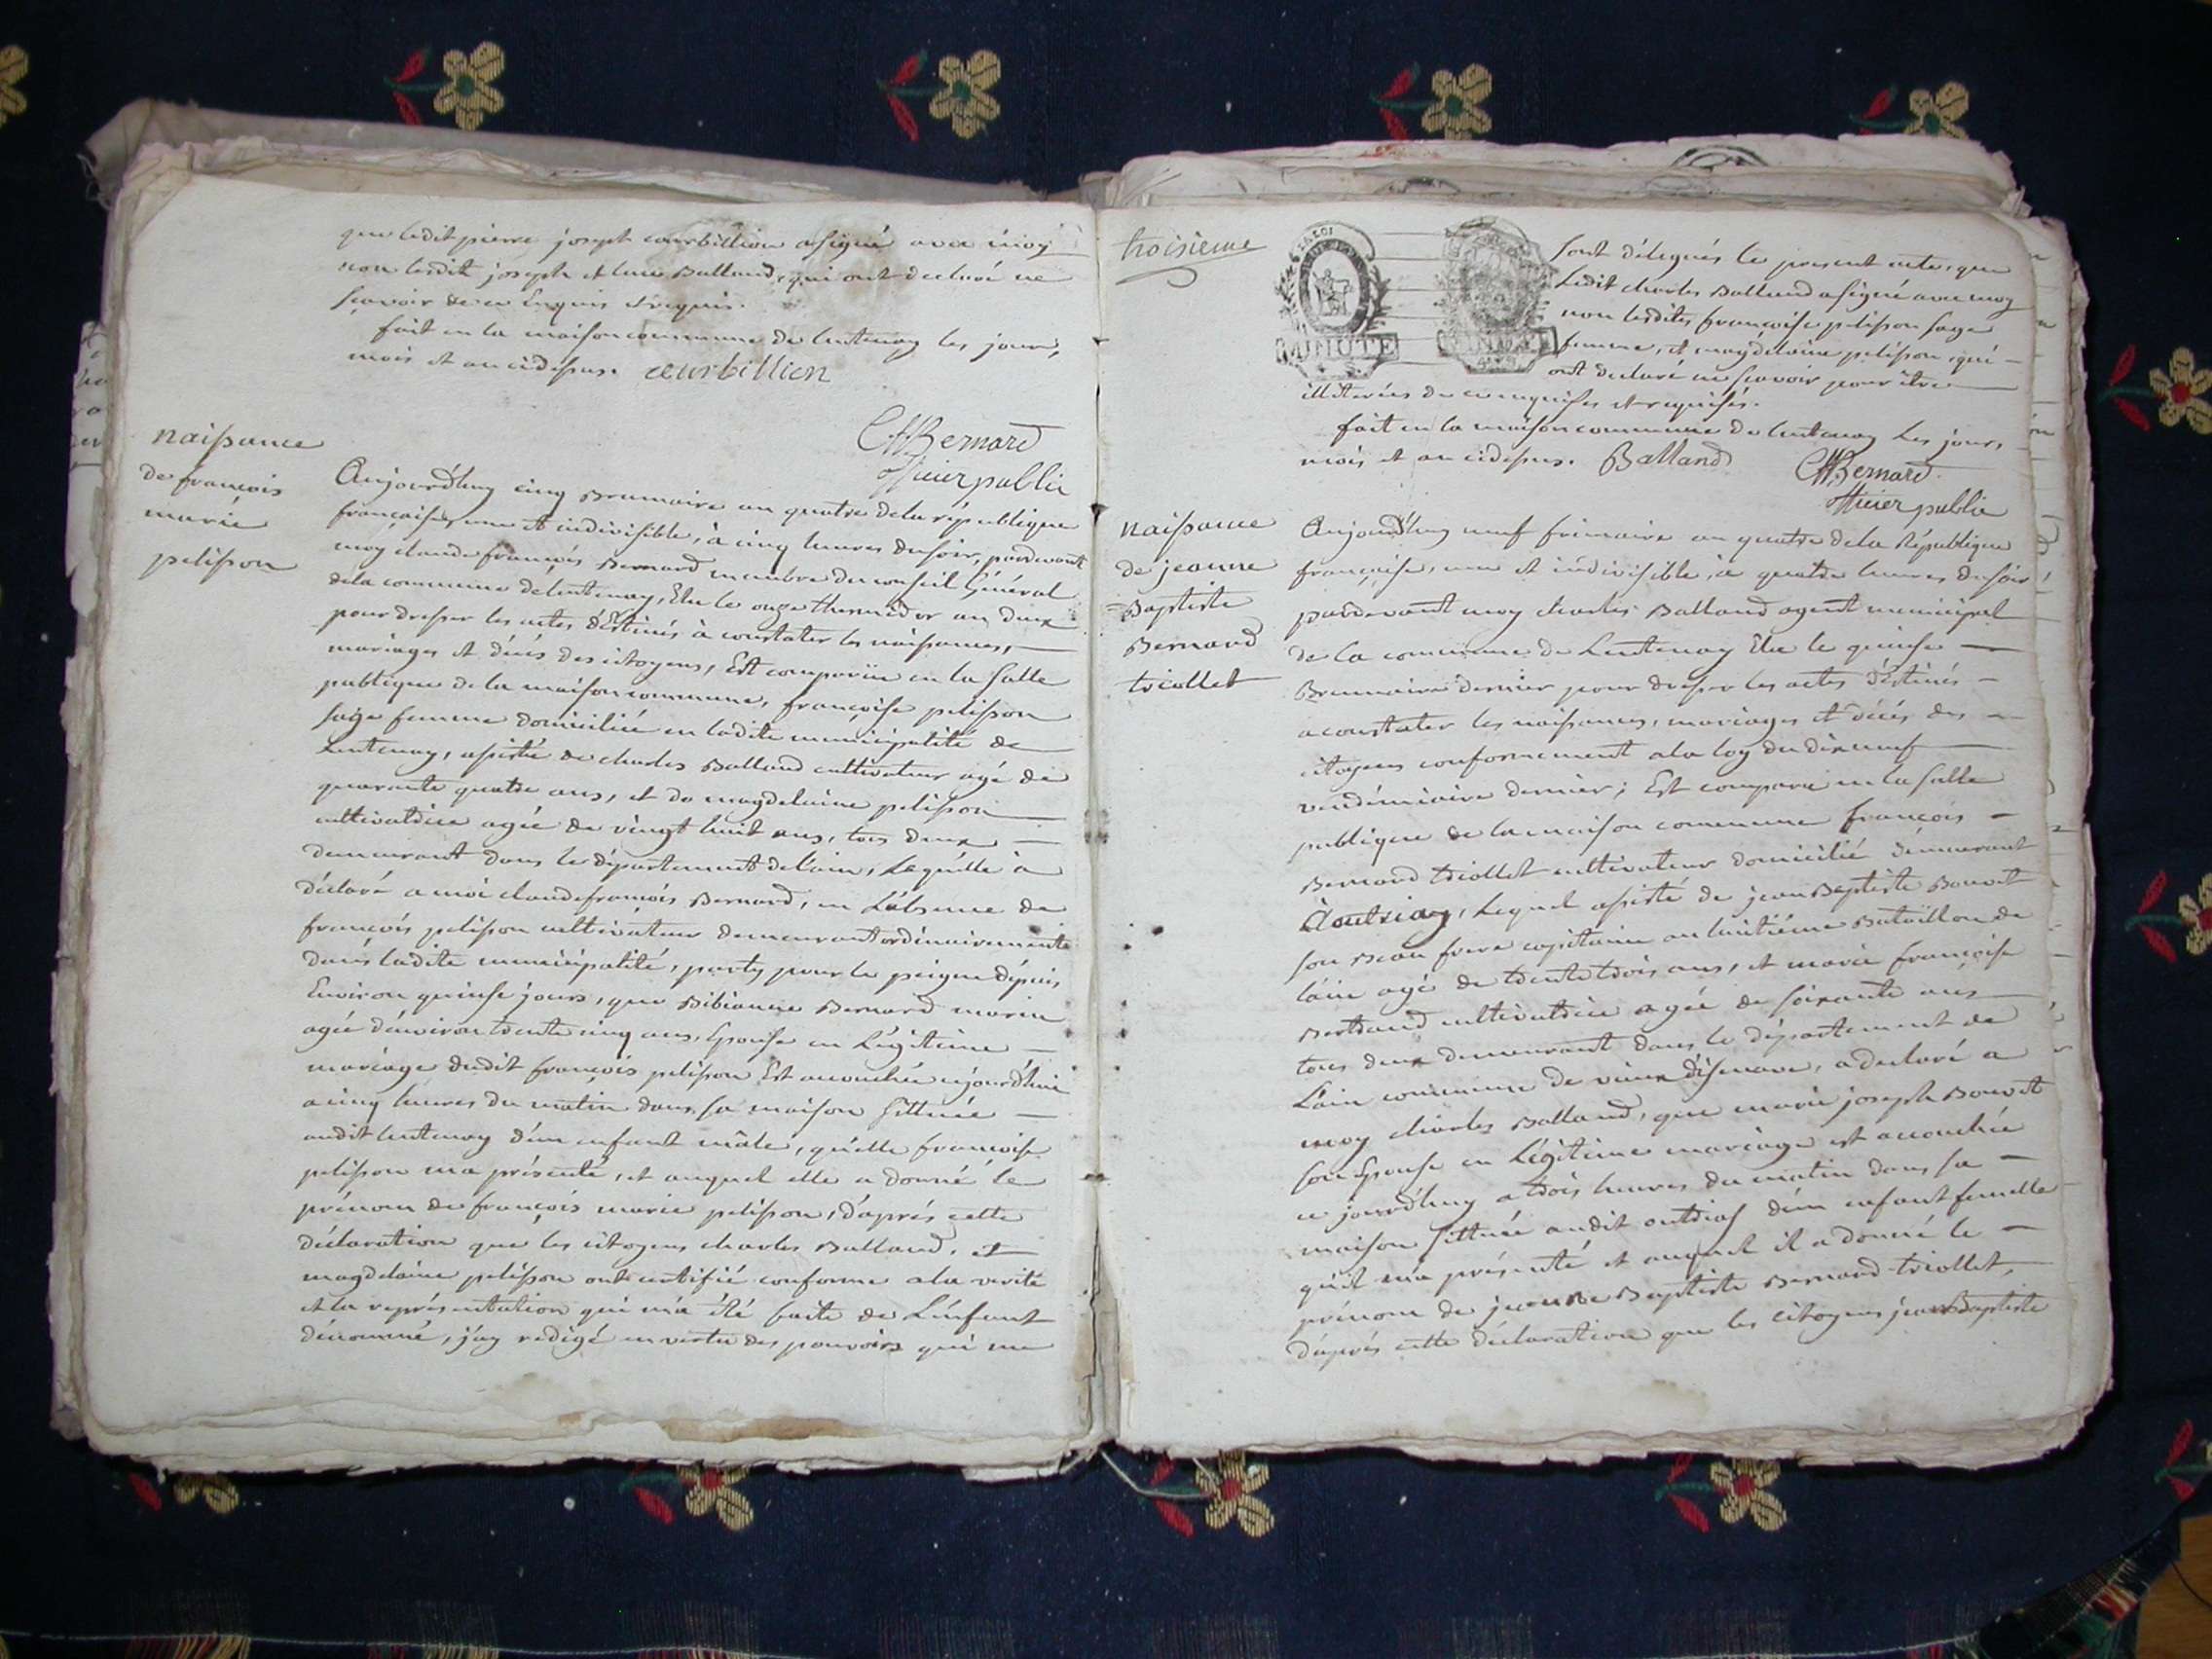 que ledit pierre joseph courbillion a signé avec moy
non lesdits joseph et Balland, qui ont declaré ne
scavoir de ce Enquis et requis.
fait en la maison commune de lentenay les jours,
mois et an cidessus. courbillion
Bernard
officier public
naissance
de françois
marie
pelisson
Aujourd'huy cinq Brumaire an quatre de la république
française, une et indivisible, à cinq heures du soir, pardevant
moy claude françois Bernard membre du conseil Général
de la commune de lentenay, Elu le onze thermidor an deux
pour dresser les actes déstinés à constater les naissances,
mariages et décés des citoyens, Est comparüe en la salle
publique de la maison commune, françoise pelisson
sage femme domiciliée en ladite municipalité de
Lentenay, assistée de charles Balland cultivateur agé de
quarante quatre ans, et de magdelaine pelisson
cultivatrice agée de vingt huit ans, tous deux
demeurant dans le département de l'ain, Laquélle à
déclaré a moi claude françois Bernard, en L'absence de
françois pelisson cultivateur demeurant ordinairemente
dans ladite municipalité, party pour le peigne dépuis
Environ quinse jours, que Bibianne Bernard morin
agée d'environ trente cinq ans, Epouse en Légitime
mariage dudit françois pelisson Est accouchée ajourd'huie
a cinq heures du matin dans sa maison sittuée
audit lentenay d'un enfant mâle, qu'elle françoise
pelisson ma présenté, et auquel elle a donné le
prénom de françois marie pelisson, d'aprés cette
déclaration que les citoyens charles Balland, et
magdelaine pelisson ont certifié conforme a la verité
et la représentation qui m'a été faite de L'enfant
dénommé, j'ay redigé en vertu des pouvoirs qui me
troisieme
MINUTE
sont délegués le present acte, que
Ledit charles Balland a signé avec moy
non lesdites françoise pelisson sage
femme, et magdelaine pelisson, qui
ont declaré ne scavoir pour être
illiterées de ce enquises et requises.
fait en la maison commune de lentenay Les jours,
mois et an cidessus. Balland Bernard
officier public
naissance
de jeanne
Baptiste
Bernard
triollet
Aujourd'huy neuf frimaire an quatre de la République
française, une et indivisible, a quatre heures du soir
pardevant moy charles Balland agent municipal
de la commune de Lentenay Elu le quinse
Brumaire dernier pour dresser les actes déstinés
a constater les naissances, mariages et décés des
citoyens conformement a la loy du dixneuf
vendémiaire dernier; Est comparu en la salle
publique de la maison commune françois
Bernard triollet cultivateur domicilié demeurant
Lequel assisté de jean Baptiste Bouvet
son Beau frere capitaine au huitiéme Bataillon de
l'ain agé de trente trois ans, et marie françoise
Bertrand cultivatrice agée de soixante ans
tous deux demeurant dans le département de
L'ain commune de vieux disenave, a declaré a
moy charles Balland, que marie joseph Bouvet
son Epouse en Légitime mariage est accouchée
ce jourd'huy a trois heures du matin dans sa
maison sittuée audit d'un enfant femelle
qu'il m'a présenté et auquel il a donné le
prénom de jeanne Baptiste Bernard triollet,
d'aprés cette déclaration que les citoyens jean Baptiste